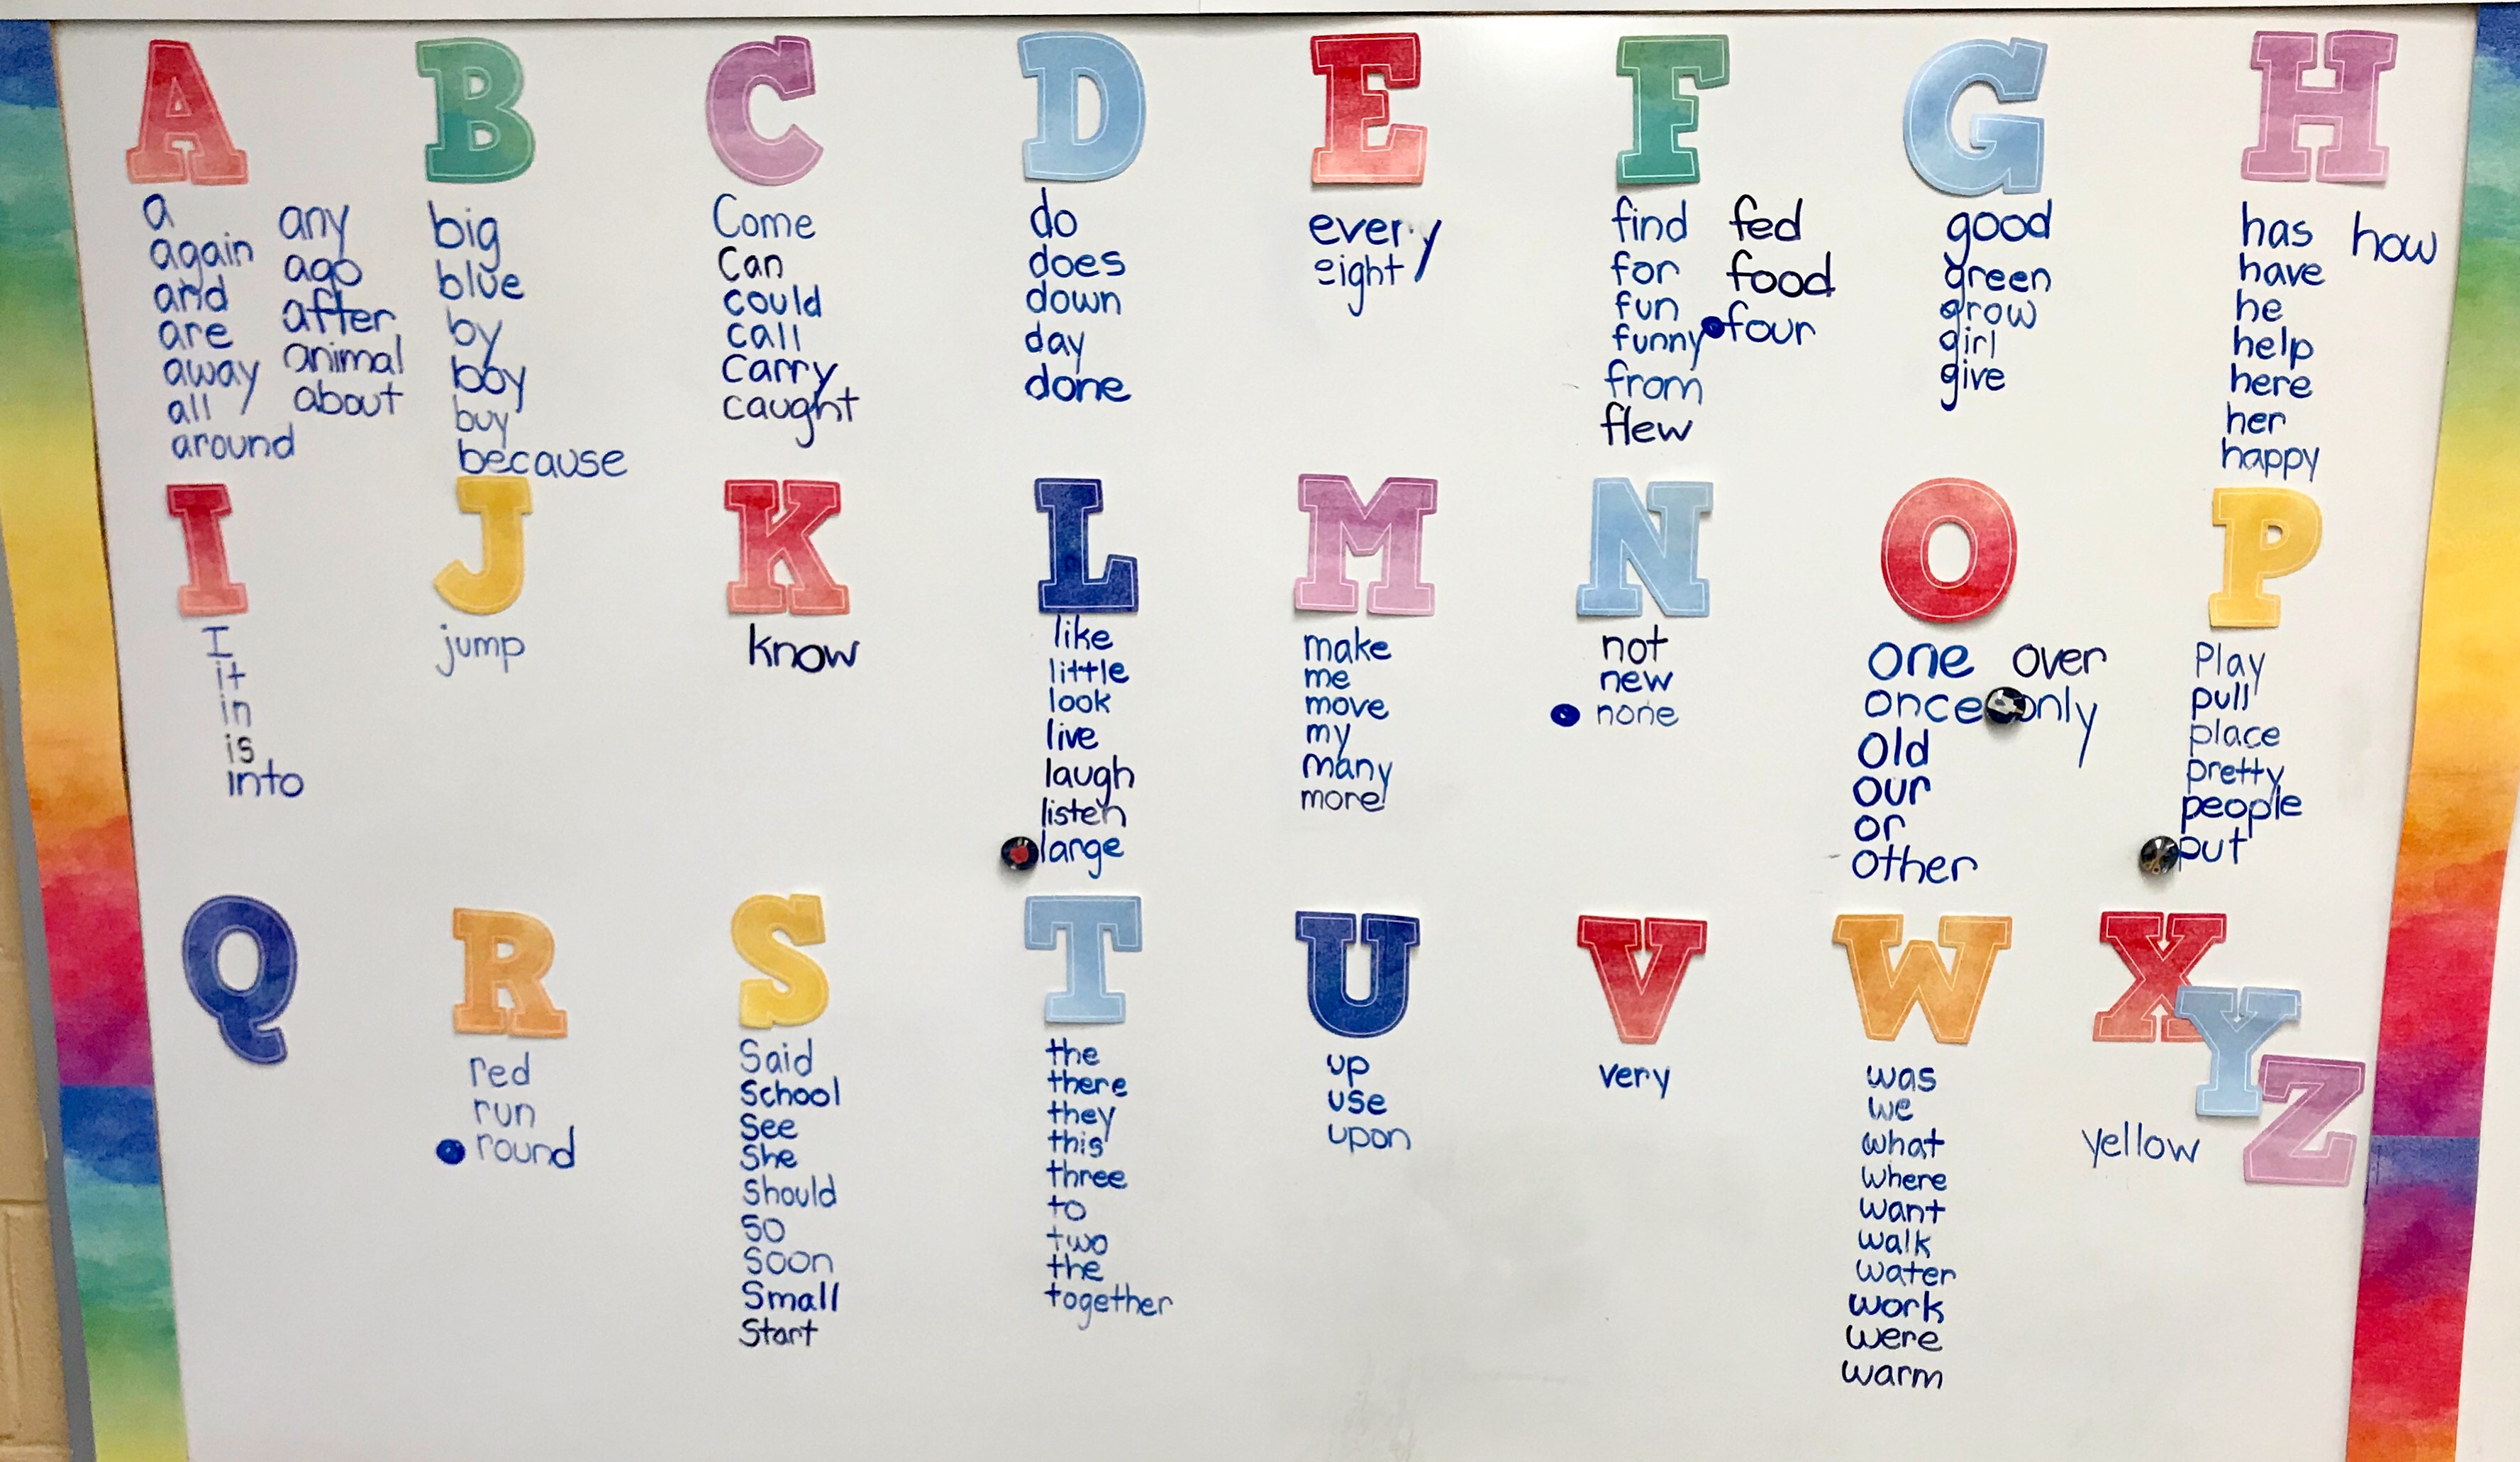 A
a
again
and
are
away
all
around
any
ago
after
animal
about
B
big
blue
by
boy
buy
because
C
Come
Can
could
call
Carry
caught
D
do
does
down
day
done
E
every
eight
F
find
for
fun
funny
from
flew
fed
food
four
G
good
green
grow
girl
give
H
has
have
he
help
here
her
happy
how
I
I
it
in
is
into
J
jump
K
know
L
like
little
look
live
laugh
listen
large
M
make
me
move
my
many
more
N
not
new
none
O
one
once
Old
our
or
Other
over
only
P
Play
pull
place
pretty
people
put
Q
R
red
run
round
S
Said
School
See
She
Should
So
Soon
Small
Start
T
the
there
they
this
three
to
two
the
together
U
up
use
upon
V
very
W
was
we
what
where
want
walk
water
work
were
warm
X
Y
Z
yellow